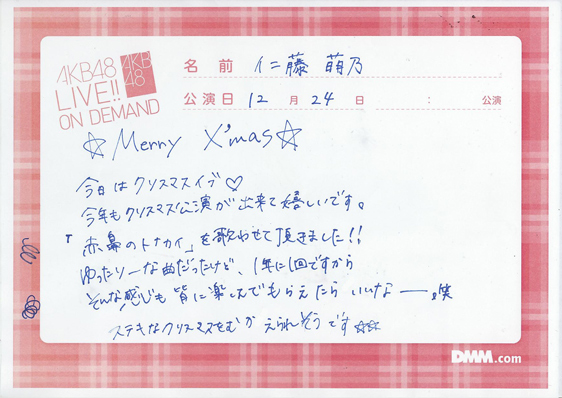 AKB48
LIVE!!
ON DEMAND
AKB
48
名前 仁藤 萌乃
公演日 12 月 24 日 : 公演
☆Merry X'mas☆
今日はクリスマスイブ♡
今年もクリスマス公演が出来て嬉しいです。
「赤鼻のトナカイ」を歌わせて頂きました!!
ゆったりーな曲だったけど、1年に1回ですから
そんな感じも皆に楽しんでもらえたらいいなー。笑
ステキなクリスマスをむかえられそうです☆☆
DMM.com